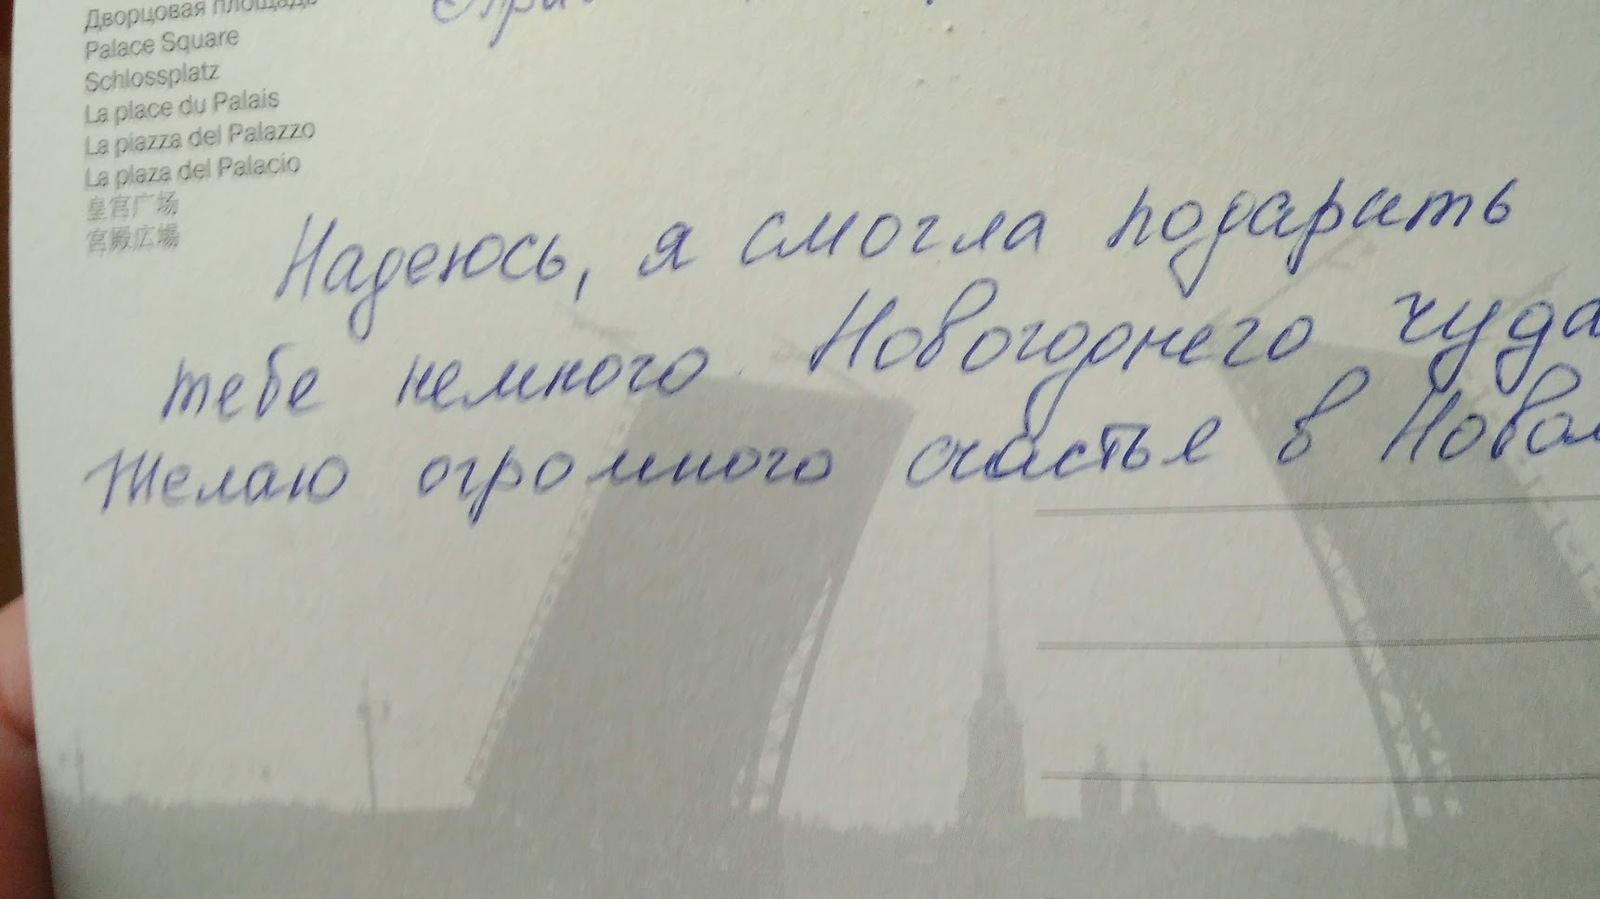 Дворцовая площадь
Palace Square
Schlossplatz
La place du Palais
La piazza del Palazzo
La plaza del Palacio
皇宫广场
宮殿広場
Надеюсь, я смогла подарить
тебе немного Новогоднего чуда
Желаю огромного счастье в Новом